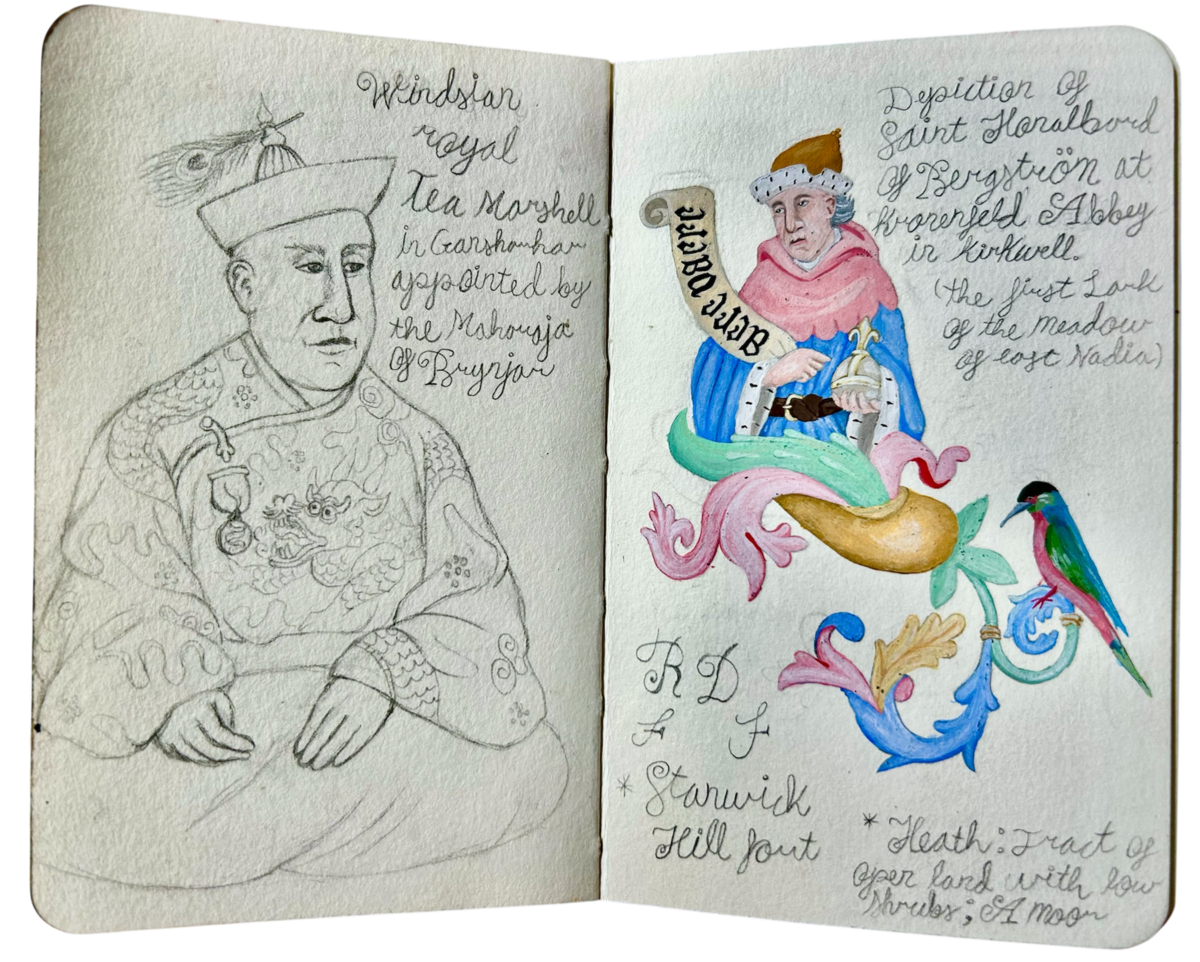 Windsian
royal
Tea Marshell
in Ganshanhar
appointed by
the Maharaja
Of Brynjar
Depiction Of
Saint Honalbord
Of Bergström at
Kronenfeld Abbey
in Kirkwell.
(the first Lark
Of the meadow
Of east Nadia)
R D
F F
* Stanwick
Hill fout
* Heath: Tract of
open land with low
shrubs; A moor